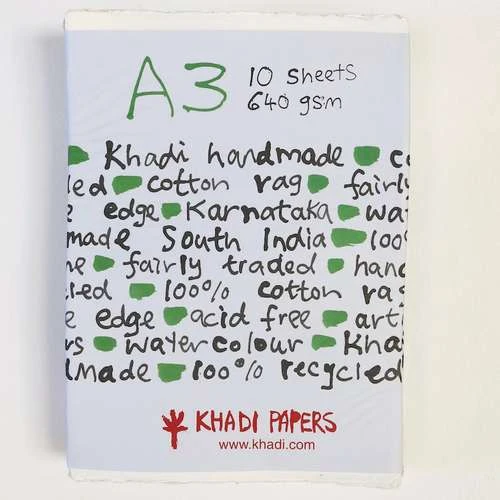 A3 10 sheets
640 gsm
Khadi handmade
cotton rag fairly
edge Karnataka
made South India 100
fairly traded
100% cotton
edge acid free
watercolour
made 100% recycled
KHADI PAPERS
www.khadi.com